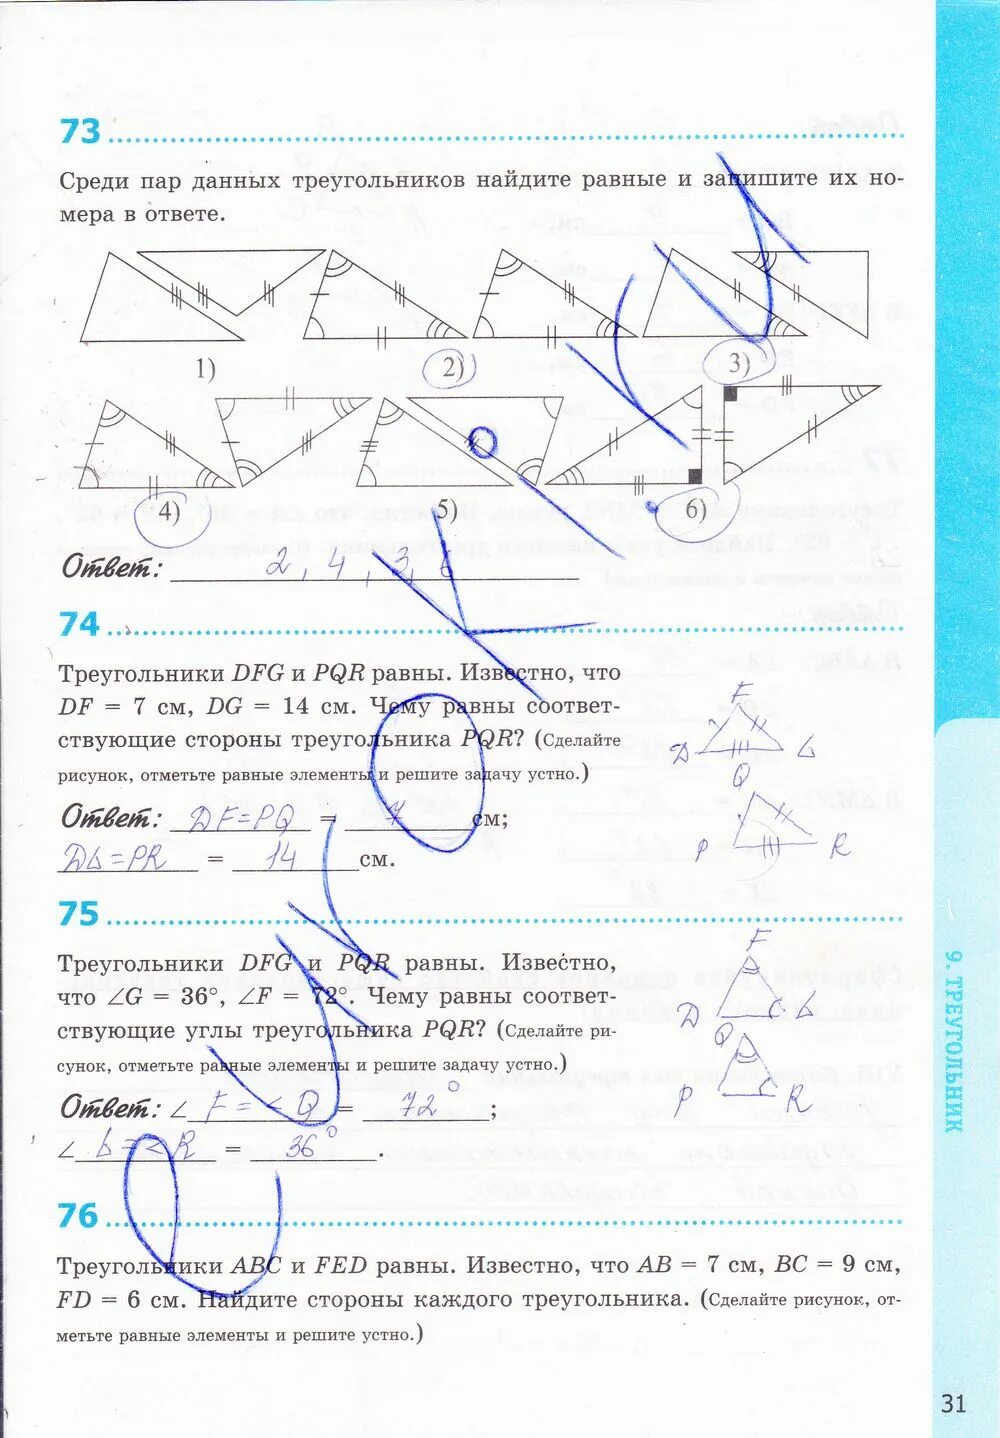 73
Среди пар данных треугольников найдите равные и запишите их но-
мера в ответе.
1) 2) 3)
4) 5) 6)
Ответ: 2, 4, 3, 6
74
Треугольники DFG и PQR равны. Известно, что
DF = 7 см, DG = 14 см. Чему равны соответ-
ствующие стороны треугольника PQR? (Сделайте
рисунок, отметьте равные элементы и решите задачу устно.)
F
D G
Q
P R
Ответ: DF=PQ = 7 см;
DG=PR = 14 см.
75
Треугольники DFG и PQR равны. Известно,
что ∠G = 36°, ∠F = 72°. Чему равны соответ-
ствующие углы треугольника PQR? (Сделайте ри-
сунок, отметьте равные элементы и решите задачу устно.)
F
D G
Q
P R
Ответ: ∠ F = ∠Q = 72°;
∠ G = ∠R = 36°.
76
Треугольники ABC и FED равны. Известно, что AB = 7 см, BC = 9 см,
FD = 6 см. Найдите стороны каждого треугольника. (Сделайте рисунок, от-
метьте равные элементы и решите устно.)
9. ТРЕУГОЛЬНИК
31